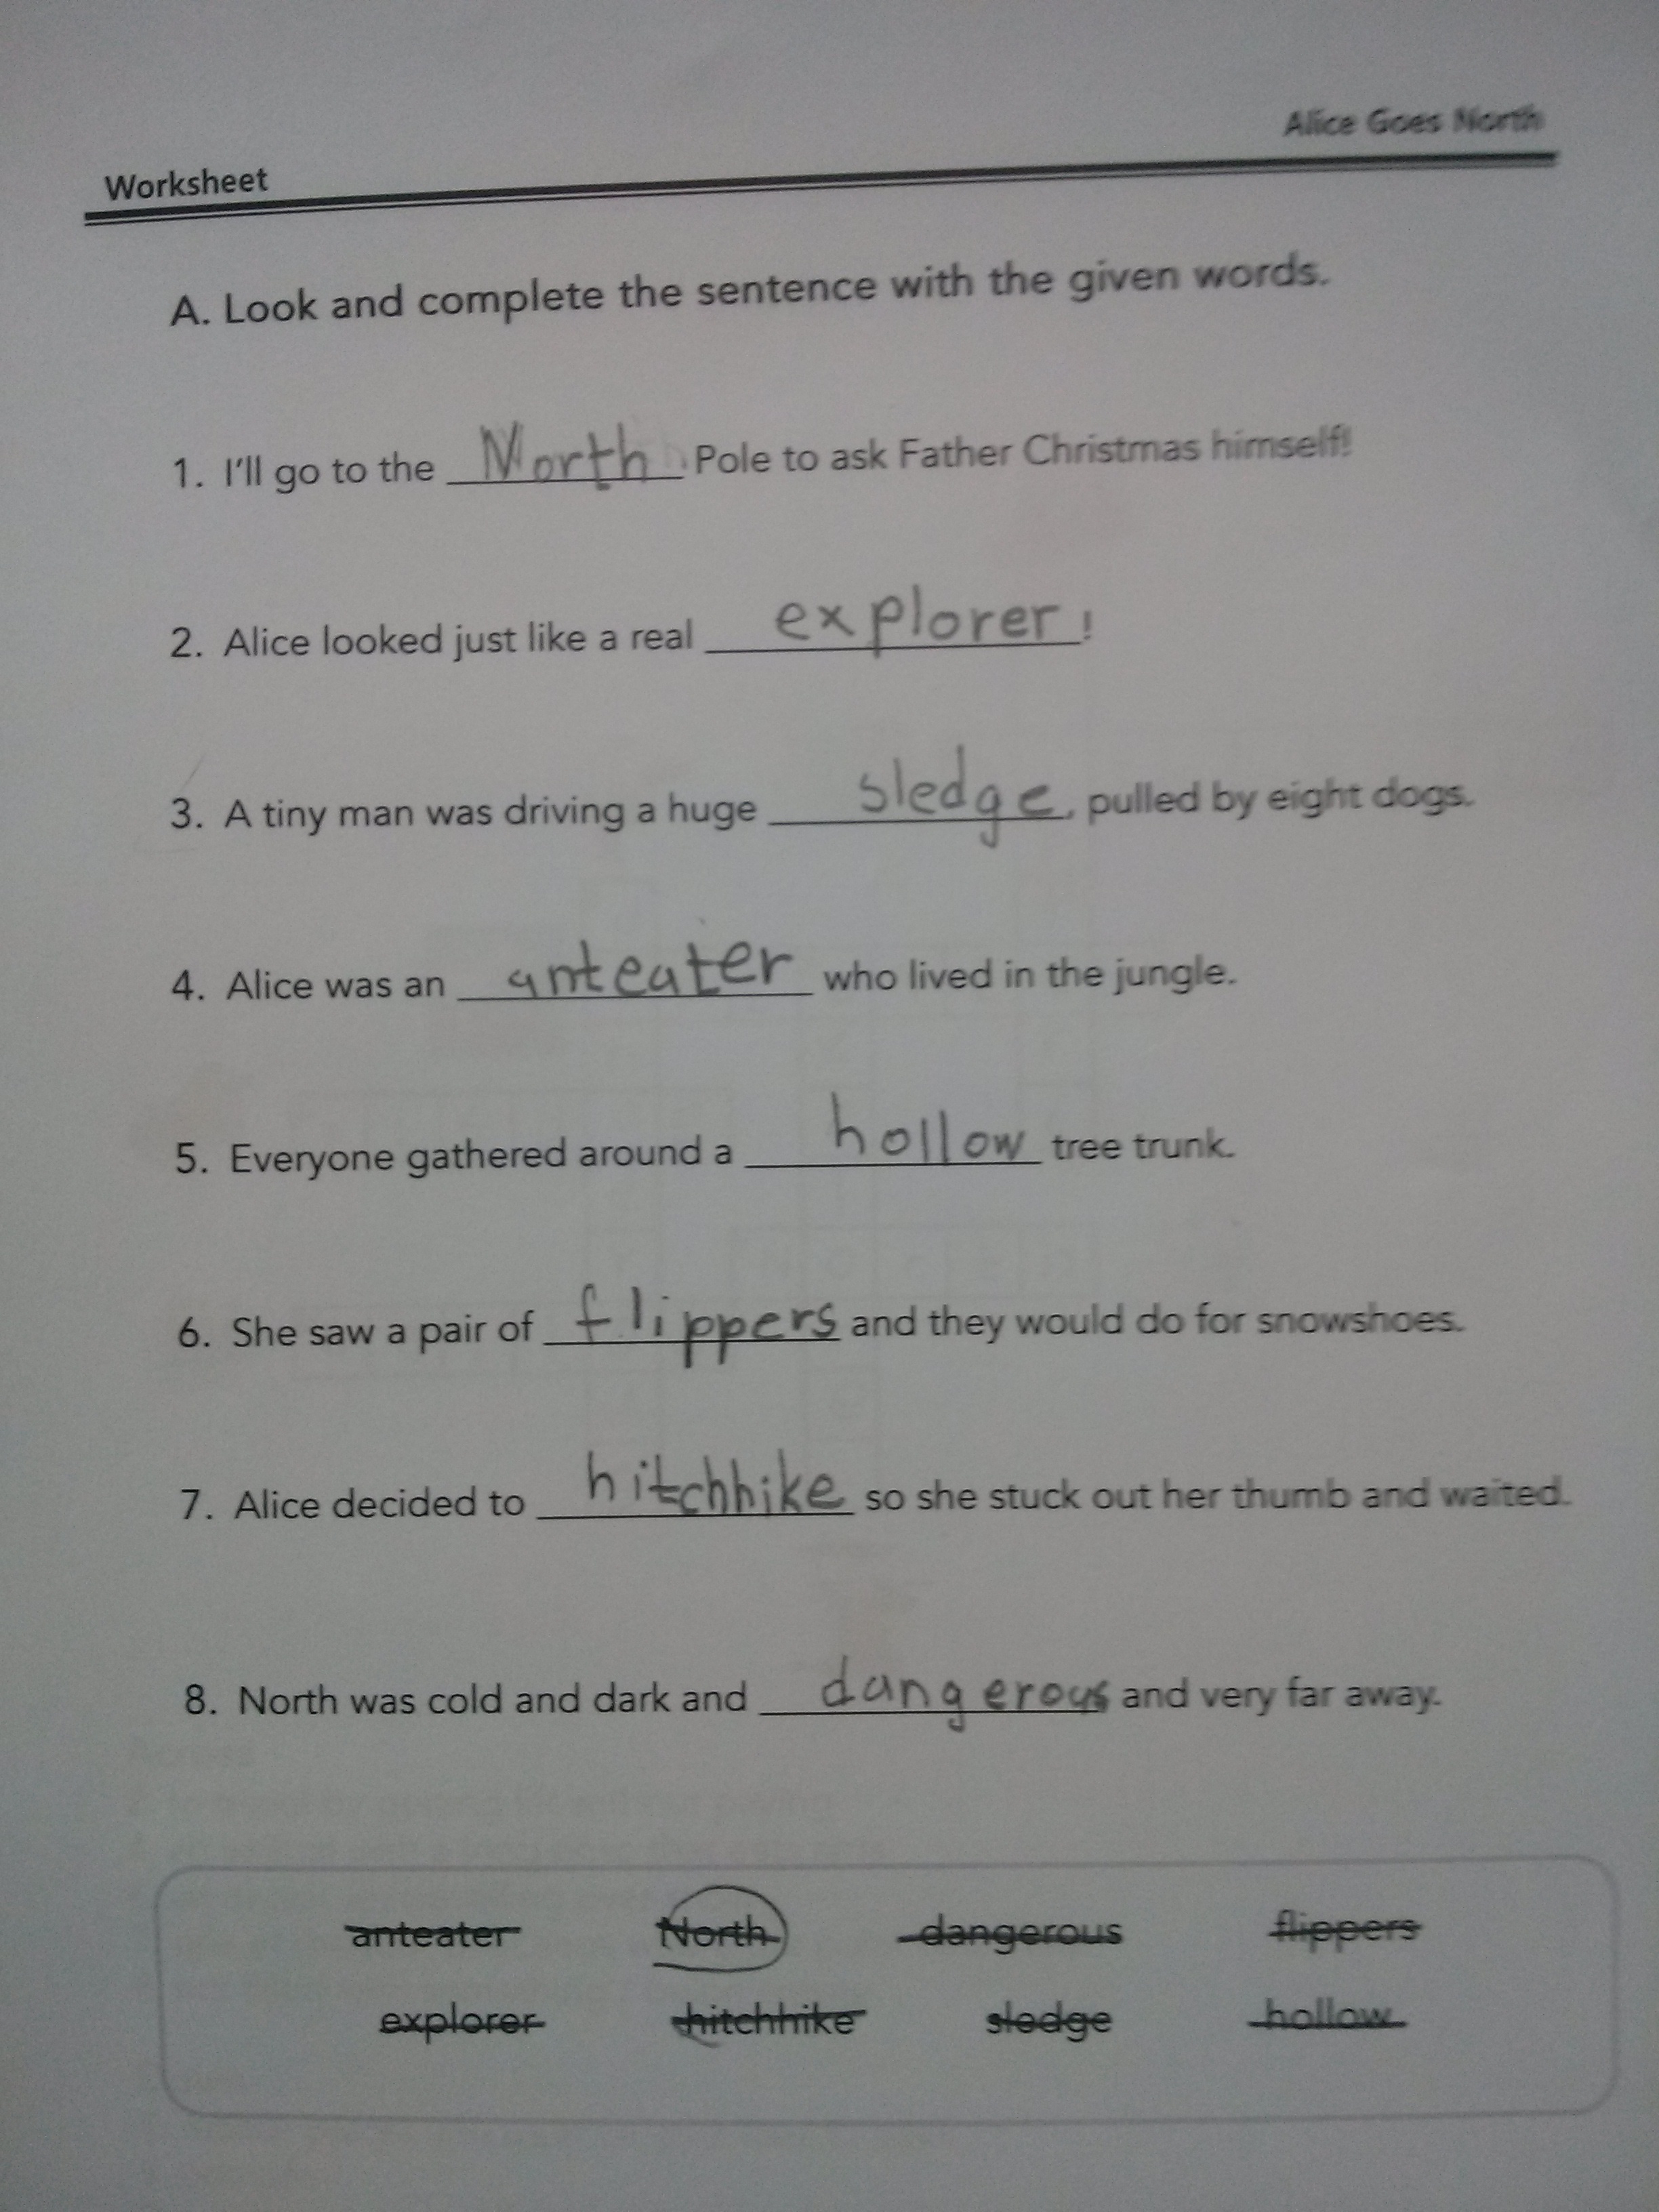 Alice Goes North
Worksheet
A. Look and complete the sentence with the given words.
1. I'll go to the North Pole to ask Father Christmas himself!
2. Alice looked just like a real explorer!
3. A tiny man was driving a huge sledge, pulled by eight dogs.
4. Alice was an anteater who lived in the jungle.
5. Everyone gathered around a hollow tree trunk.
6. She saw a pair of flippers and they would do for snowshoes.
7. Alice decided to hitchhike so she stuck out her thumb and waited.
8. North was cold and dark and dangerous and very far away.
anteater North dangerous flippers
explorer hitchhike sledge hollow